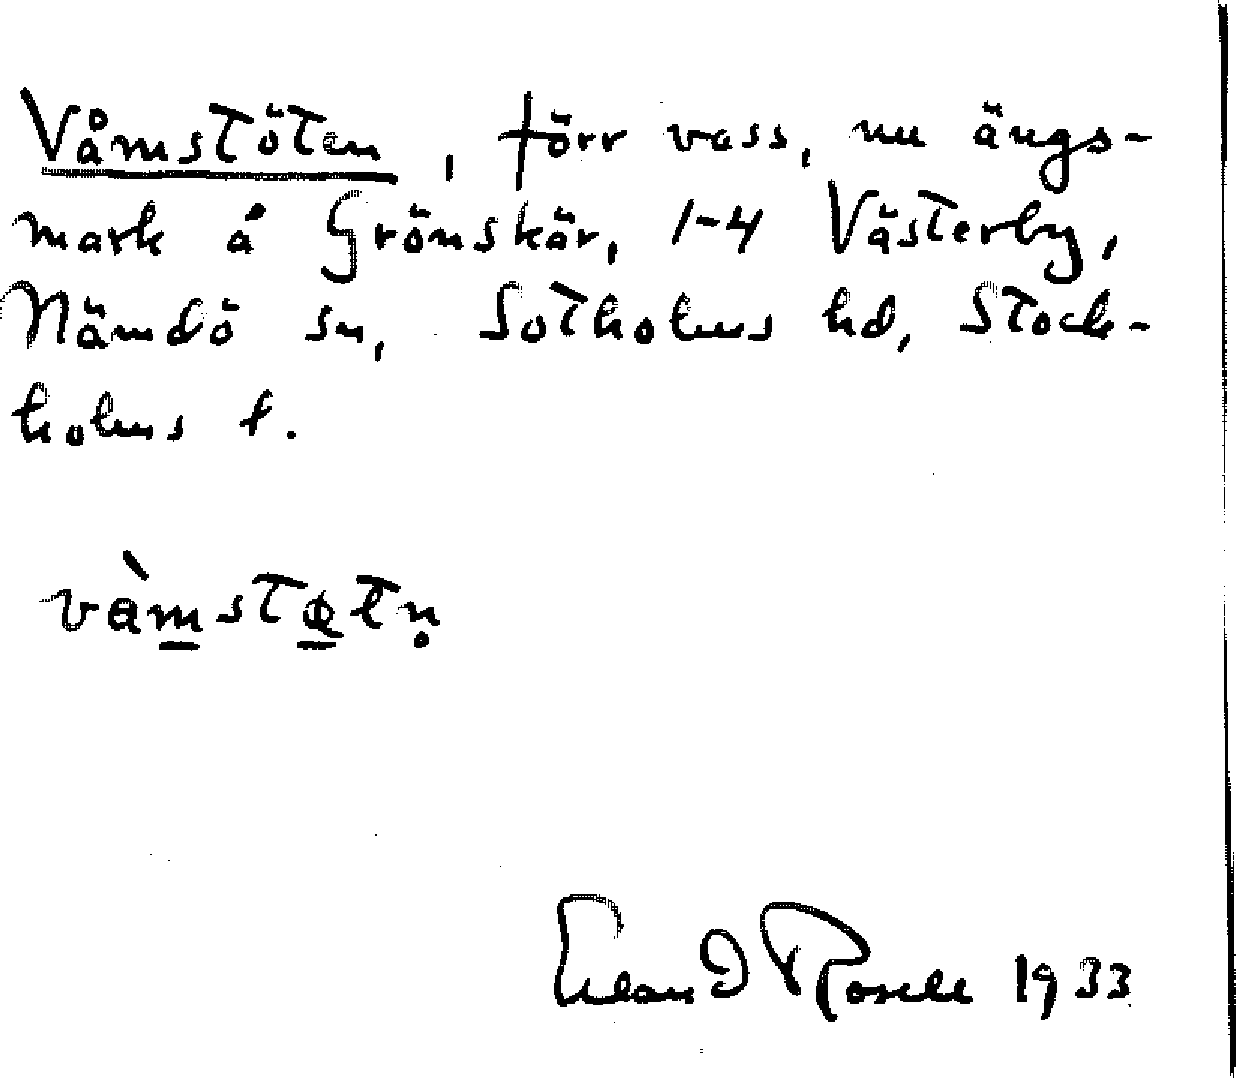 Våmstöten, förr vass, nu ängs-
mark å Grönskär, 1-4 Västerby,
Nämdö sn, Sotholms hd, Stock-
holms l.
vàmstøtṇ
Erland Rosell 1933